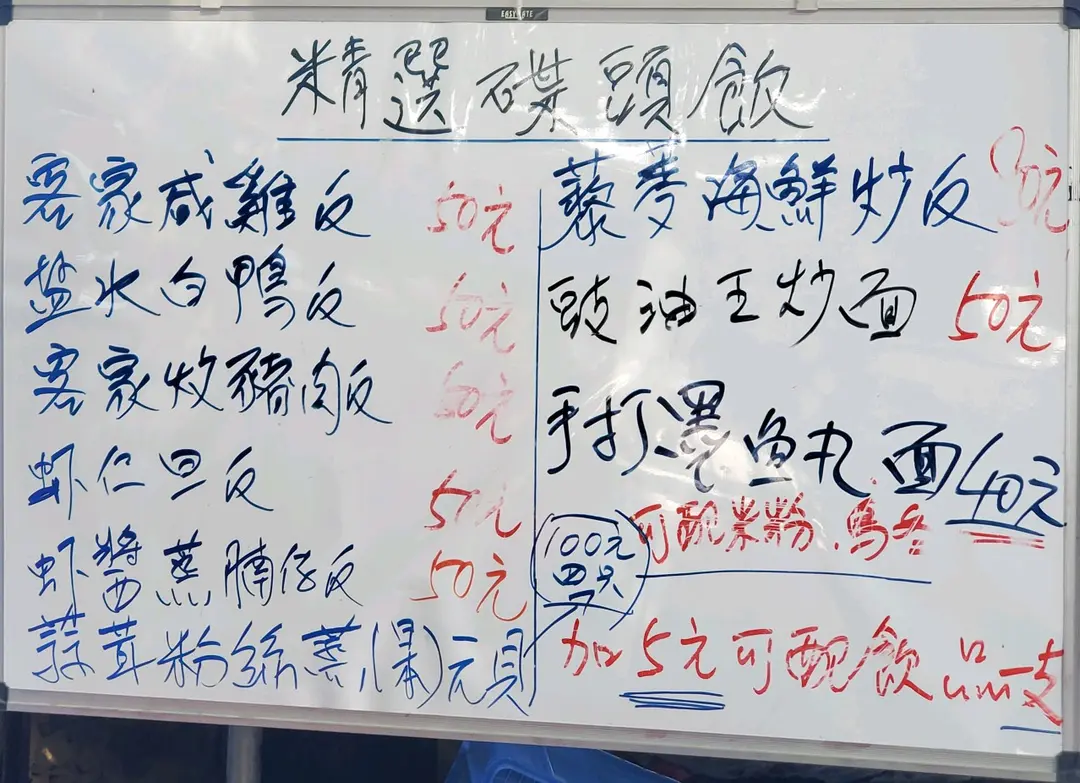 精選碟頭飲
客家咸雞反 50元
盐水白鴨反 50元
客家炆豬肉反 50元
虾仁旦反 50元
虾醬蒸腩仔反 50元
蒜茸粉絲蒸元貝
100元
四只
藜麥海鮮炒反
豉油王炒面 50元
手打墨鱼丸面 40元
可配米粉.烏冬
加5元可配飲品一支